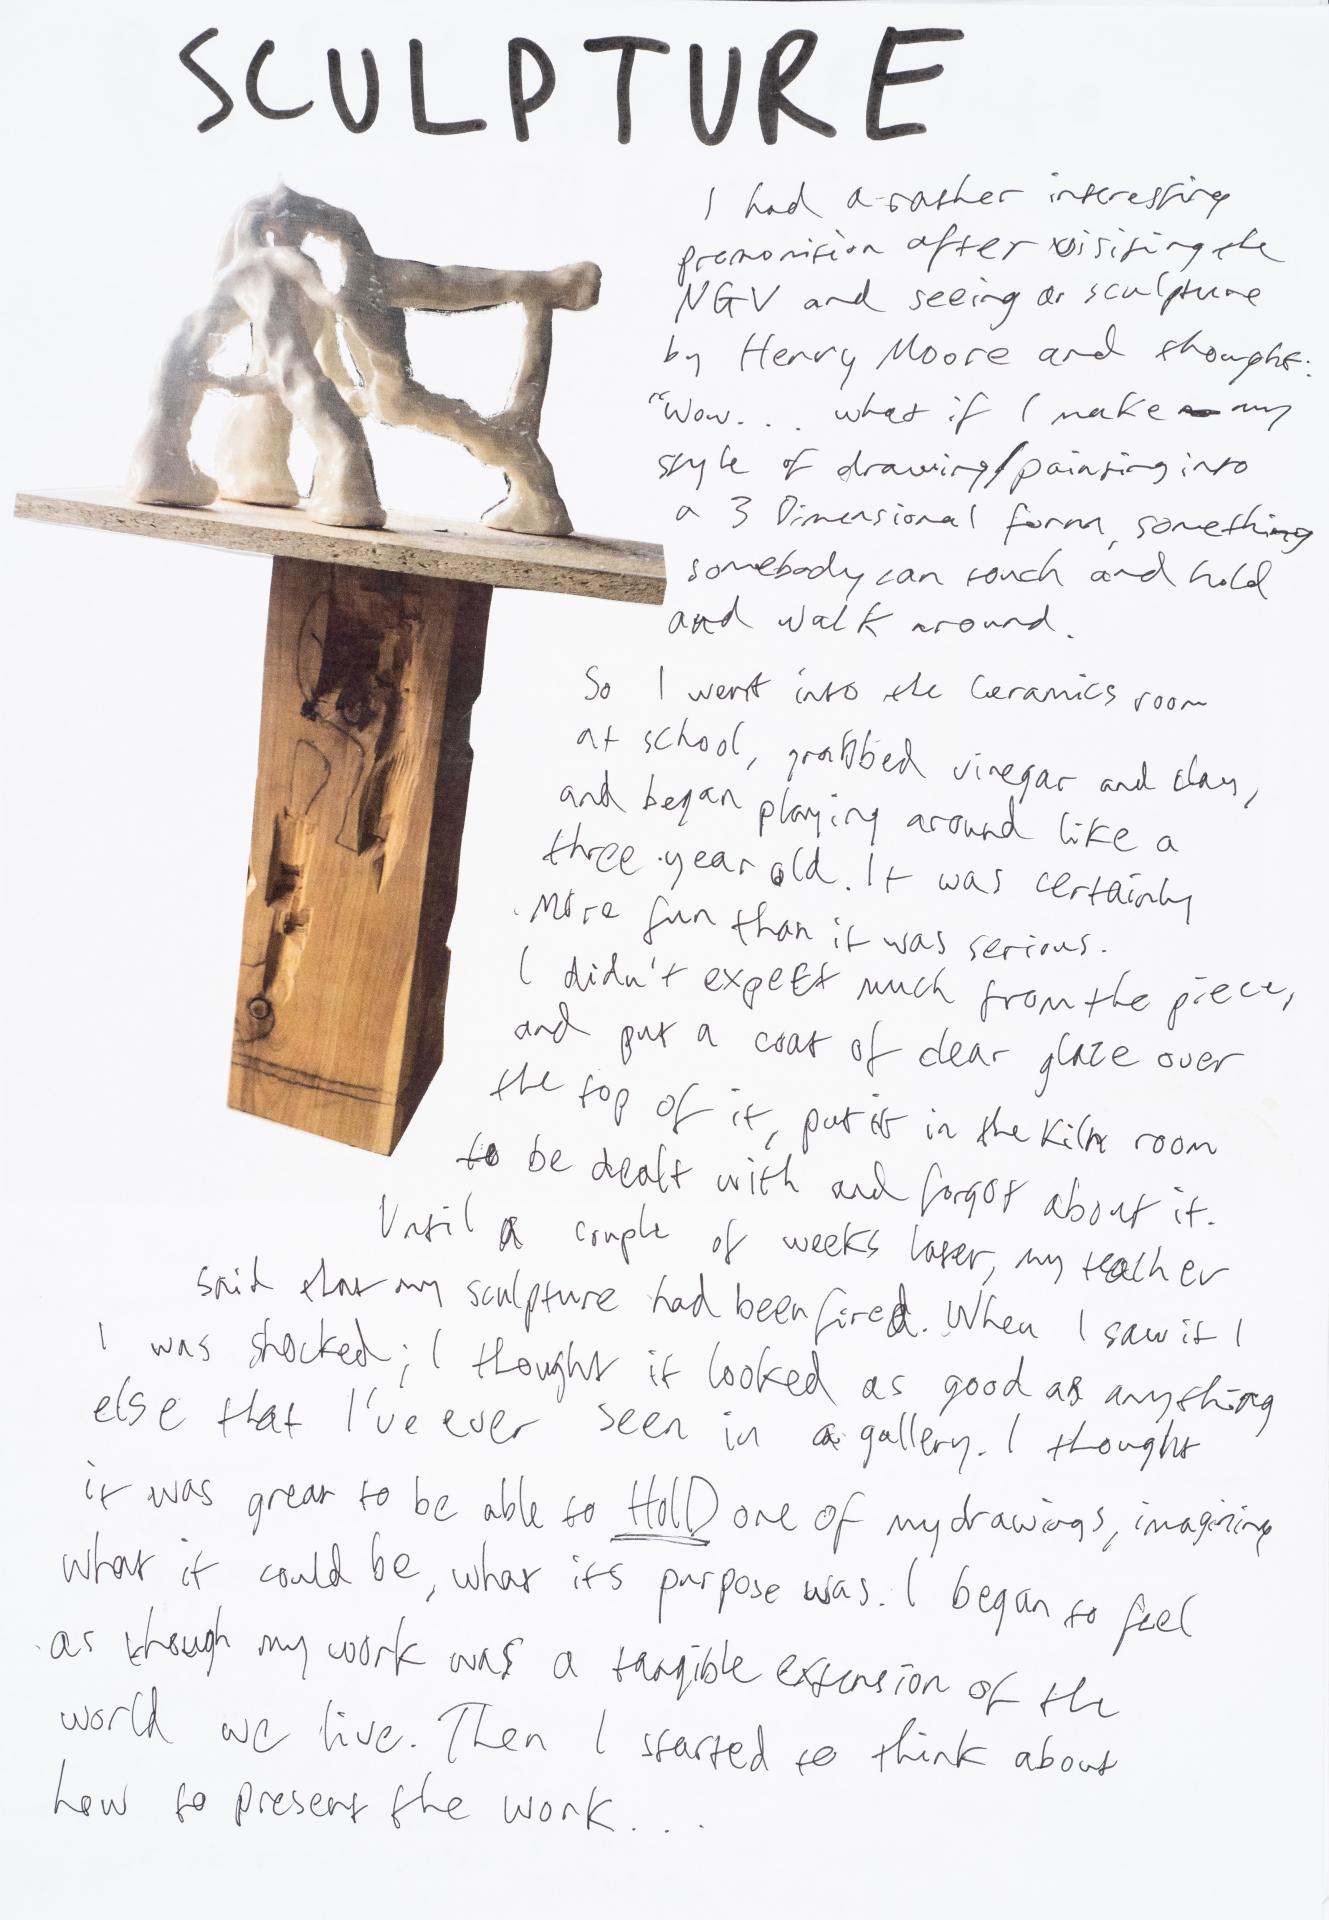 SCULPTURE
I had a rather interesting
premonition after visiting the
NGV and seeing a sculpture
by Henry Moore and thought:
"Wow... what if I make my
style of drawing/painting into
a 3 Dimensional form, something
somebody can touch and hold
and walk around.
So I went into the Ceramics room
at school, grabbed vinegar and clay,
and began playing around like a
three year old. It was certainly
more fun than it was serious.
I didn't expect much from the piece,
and put a coat of clear glaze over
the top of it, put it in the kiln room
to be dealt with and forgot about it.
Until a couple of weeks later, my teacher
said that my sculpture had been fired. When I saw it I
was shocked; I thought it looked as good as anything
else that I've ever seen in a gallery. I thought
it was great to be able to HOLD one of my drawings, imagining
what it could be, what its purpose was. I began to feel
as though my work was a tangible extension of the
world we live. Then I started to think about
how to present the work...